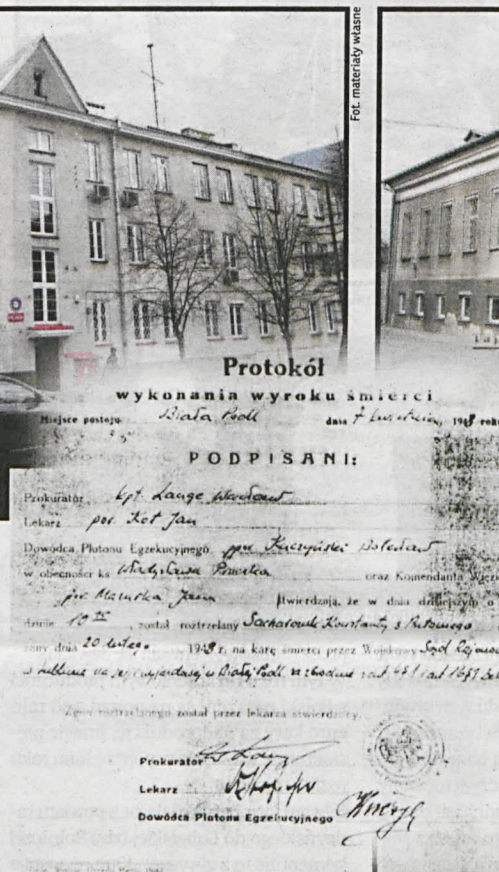 Fot. materiały własne
Protokół
wykonania wyroku śmierci
Miejsce postoju Biała Podl dnia 7 kwietnia, 1948 roku
PODPISANI:
Prokurator kpt. Lange Wacław
Lekarz por. Kot Jan
Dowódca Plutonu Egzekucyjnego ppor. Kuczyński Bolesław
w obecności ks Władysława oraz Komendanta Więz
Mazurka Jana stwierdzają, że w dniu dzisiejszym o
dzinie 19 został rozstrzelany Sacharczuk Konstanty s.
zany dnia 20 lutego 1948 r. na karę śmierci przez Wojskowy Sąd Rejonow
w Lublinie na sesji wyjazdowej w Białej Podl. za zbrodnie z art.
Zgon rozstrzelanego został przez lekarza stwierdzony.
Prokurator
Lekarz Kot por
Dowódca Plutonu Egzekucyjnego